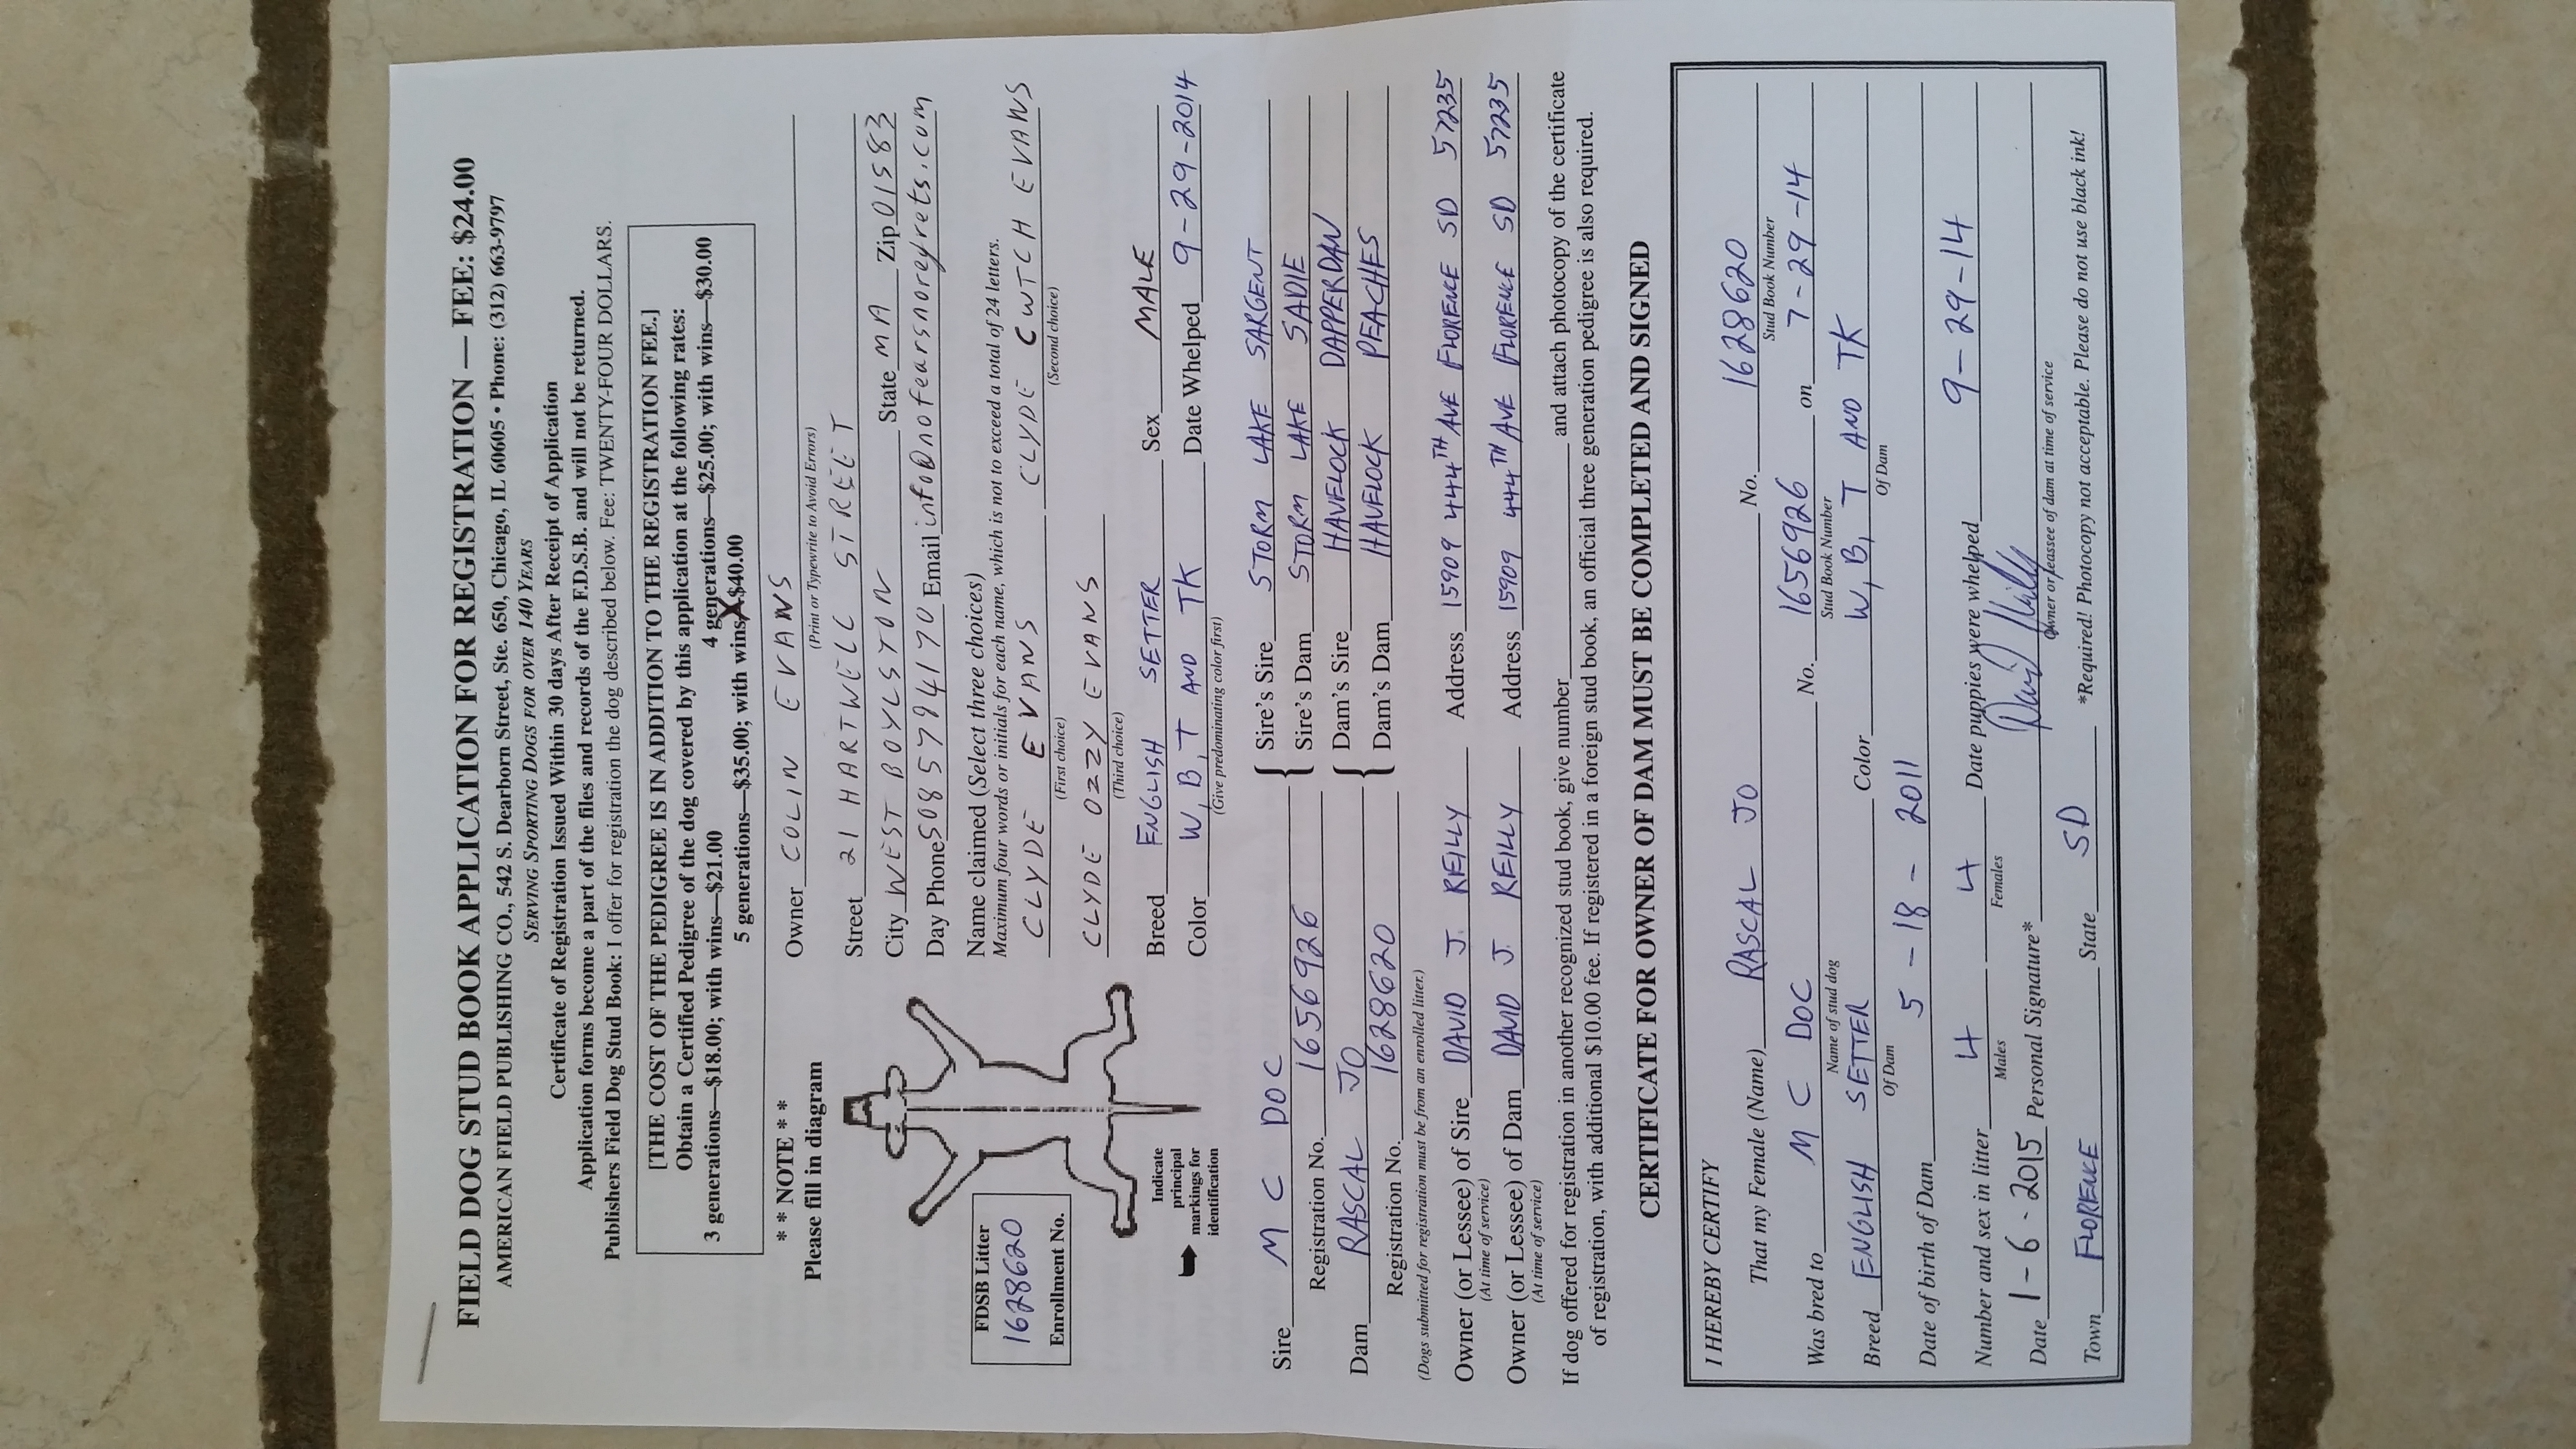 FIELD DOG STUD BOOK APPLICATION FOR REGISTRATION — FEE: $24.00
AMERICAN FIELD PUBLISHING CO., 542 S. Dearborn Street, Ste. 650, Chicago, IL 60605 • Phone: (312) 663-9797
SERVING SPORTING DOGS FOR OVER 140 YEARS
Certificate of Registration Issued Within 30 days After Receipt of Application
Application forms become a part of the files and records of the F.D.S.B. and will not be returned.
Publishers Field Dog Stud Book: I offer for registration the dog described below. Fee: TWENTY-FOUR DOLLARS.
[THE COST OF THE PEDIGREE IS IN ADDITION TO THE REGISTRATION FEE.]
Obtain a Certified Pedigree of the dog covered by this application at the following rates:
3 generations—$18.00; with wins—$21.00 4 generations—$25.00; with wins—$30.00
5 generations—$35.00; with wins X $40.00
* * NOTE * *
Please fill in diagram
Owner COLIN EVANS
(Print or Typewrite to Avoid Errors)
Street 21 HARTWELL STREET
City WEST BOYLSTON State MA Zip 01583
Day Phone 5085794170 Email info@nofearsnoregrets.com
Name claimed (Select three choices)
Maximum four words or initials for each name, which is not to exceed a total of 24 letters.
CLYDE EVANS CLYDE CWTCH EVANS
(First choice) (Second choice)
CLYDE OZZY EVANS
(Third choice)
FDSB Litter
1628620
Enrollment No.
Indicate
principal
markings for
identification
Breed ENGLISH SETTER Sex MALE
Color W, B, T AND TK Date Whelped 9-29-2014
(Give predominating color first)
Sire M C DOC Sire's Sire STORM LAKE SARGENT
Registration No. 1656926 Sire's Dam STORM LAKE SADIE
Dam RASCAL JO Dam's Sire HAVELOCK DAPPERDAN
Registration No. 1628620 Dam's Dam HAVELOCK PEACHES
(Dogs submitted for registration must be from an enrolled litter.)
Owner (or Lessee) of Sire DAVID J. REILLY Address 15909 444TH AVE FLORENCE SD 57235
(At time of service)
Owner (or Lessee) of Dam DAVID J REILLY Address 15909 444TH AVE FLORENCE SD 57235
(At time of service)
If dog offered for registration in another recognized stud book, give number and attach photocopy of the certificate
of registration, with additional $10.00 fee. If registered in a foreign stud book, an official three generation pedigree is also required.
CERTIFICATE FOR OWNER OF DAM MUST BE COMPLETED AND SIGNED
I HEREBY CERTIFY
That my Female (Name) RASCAL JO No. 1628620
Stud Book Number
Was bred to M C DOC No. 1656926 on 7-29-14
Name of stud dog Stud Book Number
Breed ENGLISH SETTER Color W, B, T AND TK
Of Dam Of Dam
Date of birth of Dam 5-18-2011
Number and sex in litter 4 4 Date puppies were whelped 9-29-14
Males Females
Date 1-6-2015 Personal Signature* David Reilly
Owner or leassee of dam at time of service
Town FLORENCE State SD *Required! Photocopy not acceptable. Please do not use black ink!